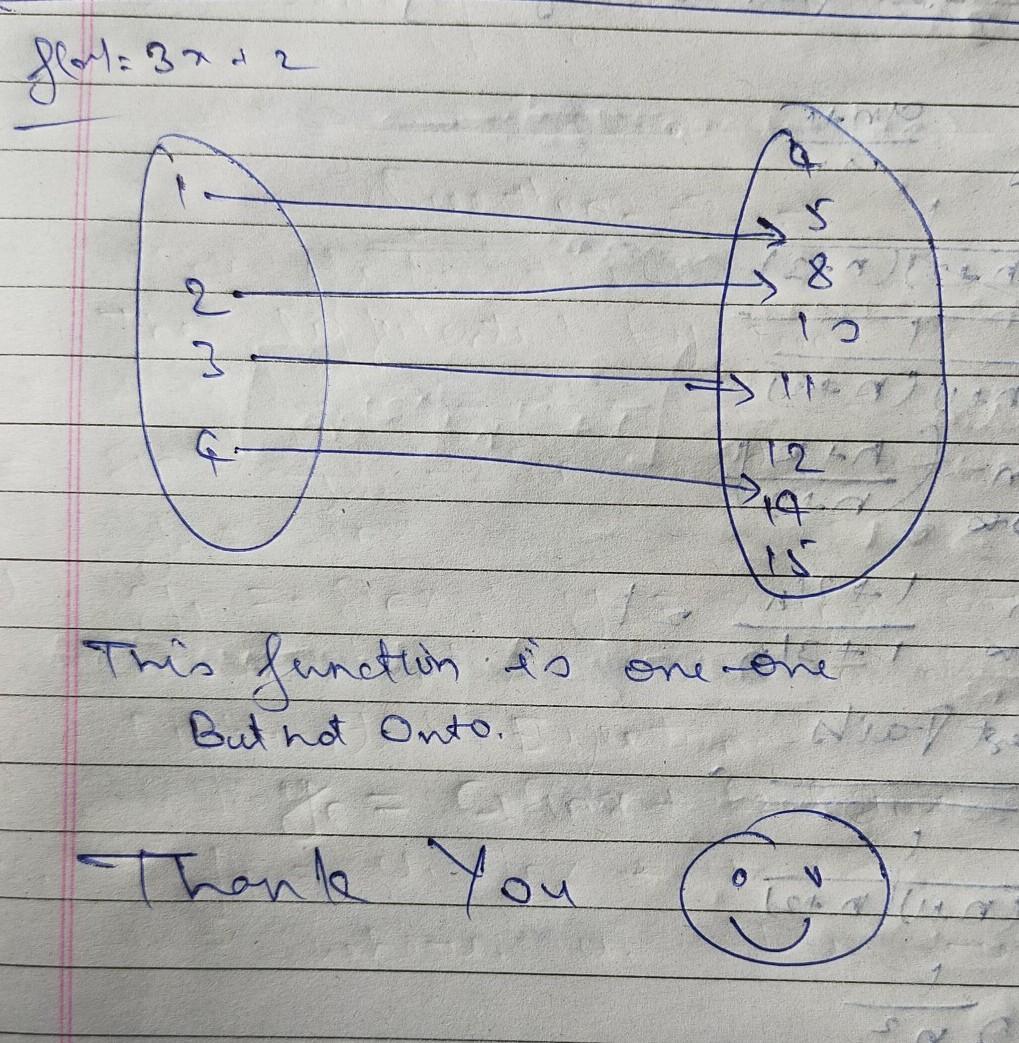 f(x) = 3x + 2
1
2
3
4
4
5
8
10
11
12
14
15
This function is one-one
But not Onto.
Thank You